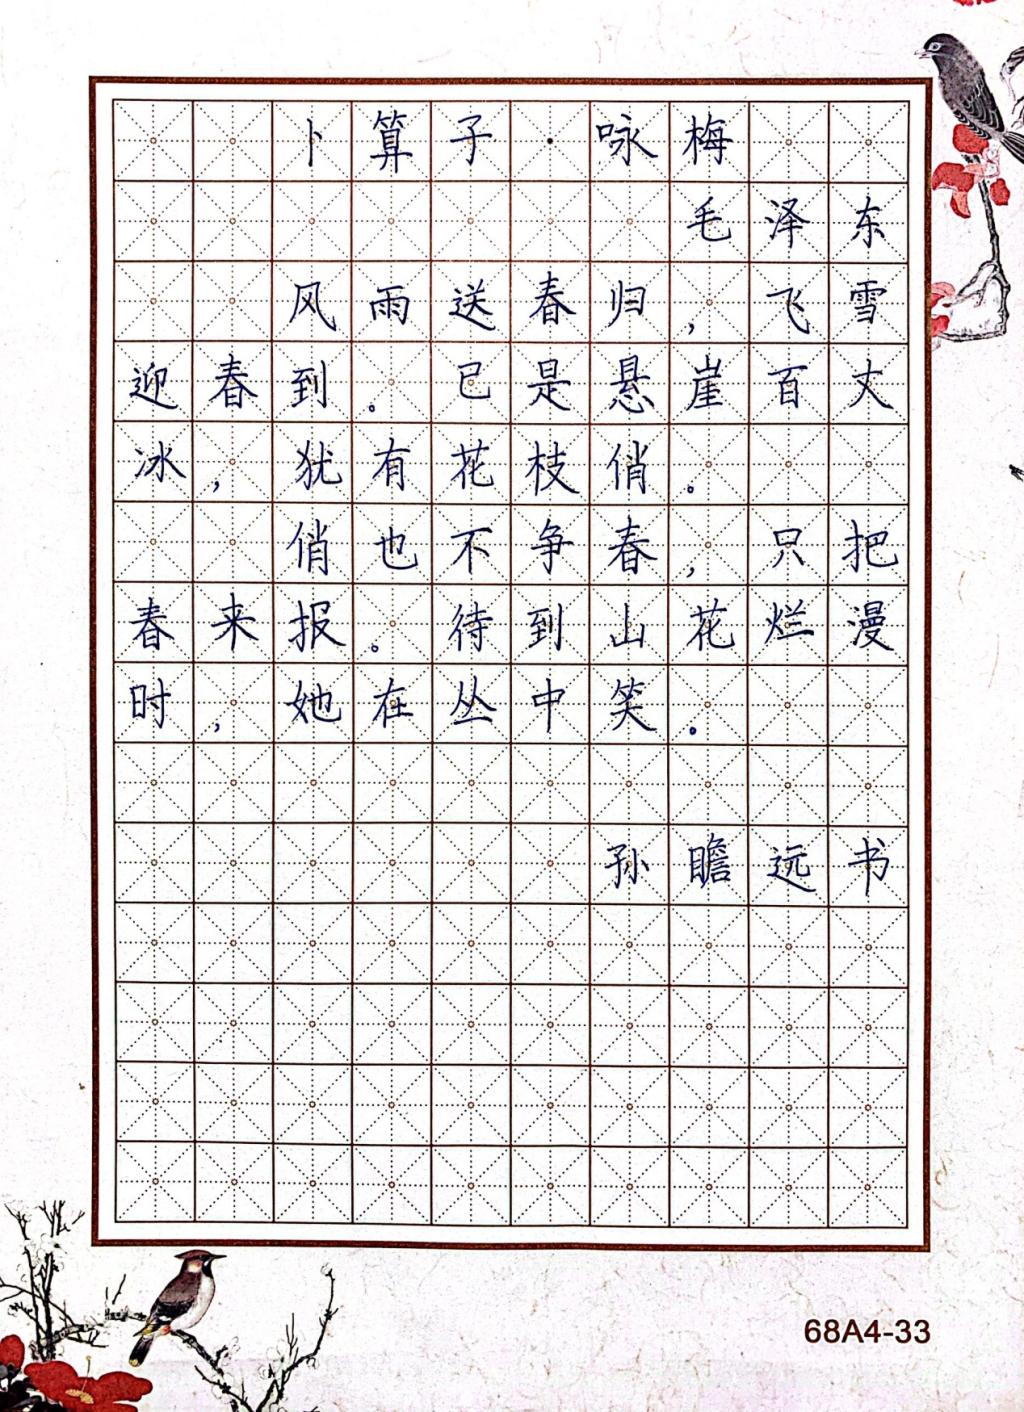 卜算子·咏梅
毛泽东
风雨送春归，飞雪
迎春到。已是悬崖百丈
冰，犹有花枝俏。
俏也不争春，只把
春来报。待到山花烂漫
时，她在丛中笑。
孙瞻远书
68A4-33